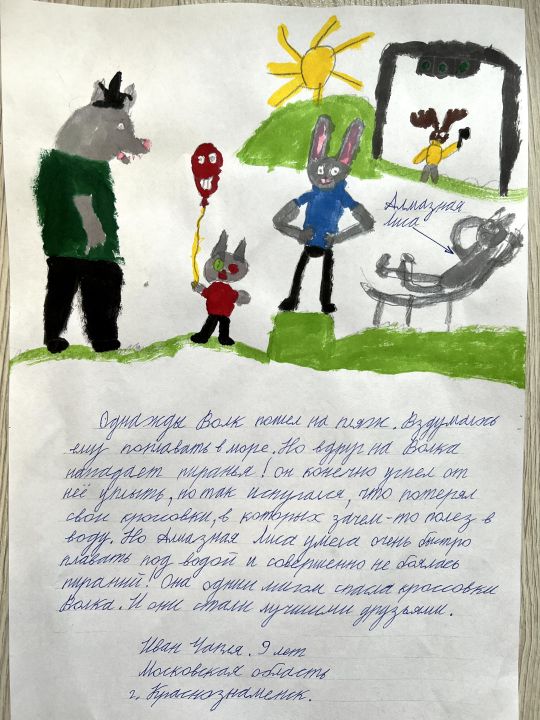 Алмазная
лиса
Однажды Волк пошел на пляж. Вздумалось
ему поплавать в море. Но вдруг на Волка
нападает пиранья! Он конечно успел от
неё уплыть, но так испугался, что потерял
свои кроссовки, в которых зачем-то полез в
воду. Но Алмазная Лиса умела очень быстро
плавать под водой и совершенно не боялась
пираний! Она одним мигом спасла кроссовки
Волка. И они стали лучшими друзьями.
Иван Чапля. 9 лет
Московская область
г. Краснознаменск.